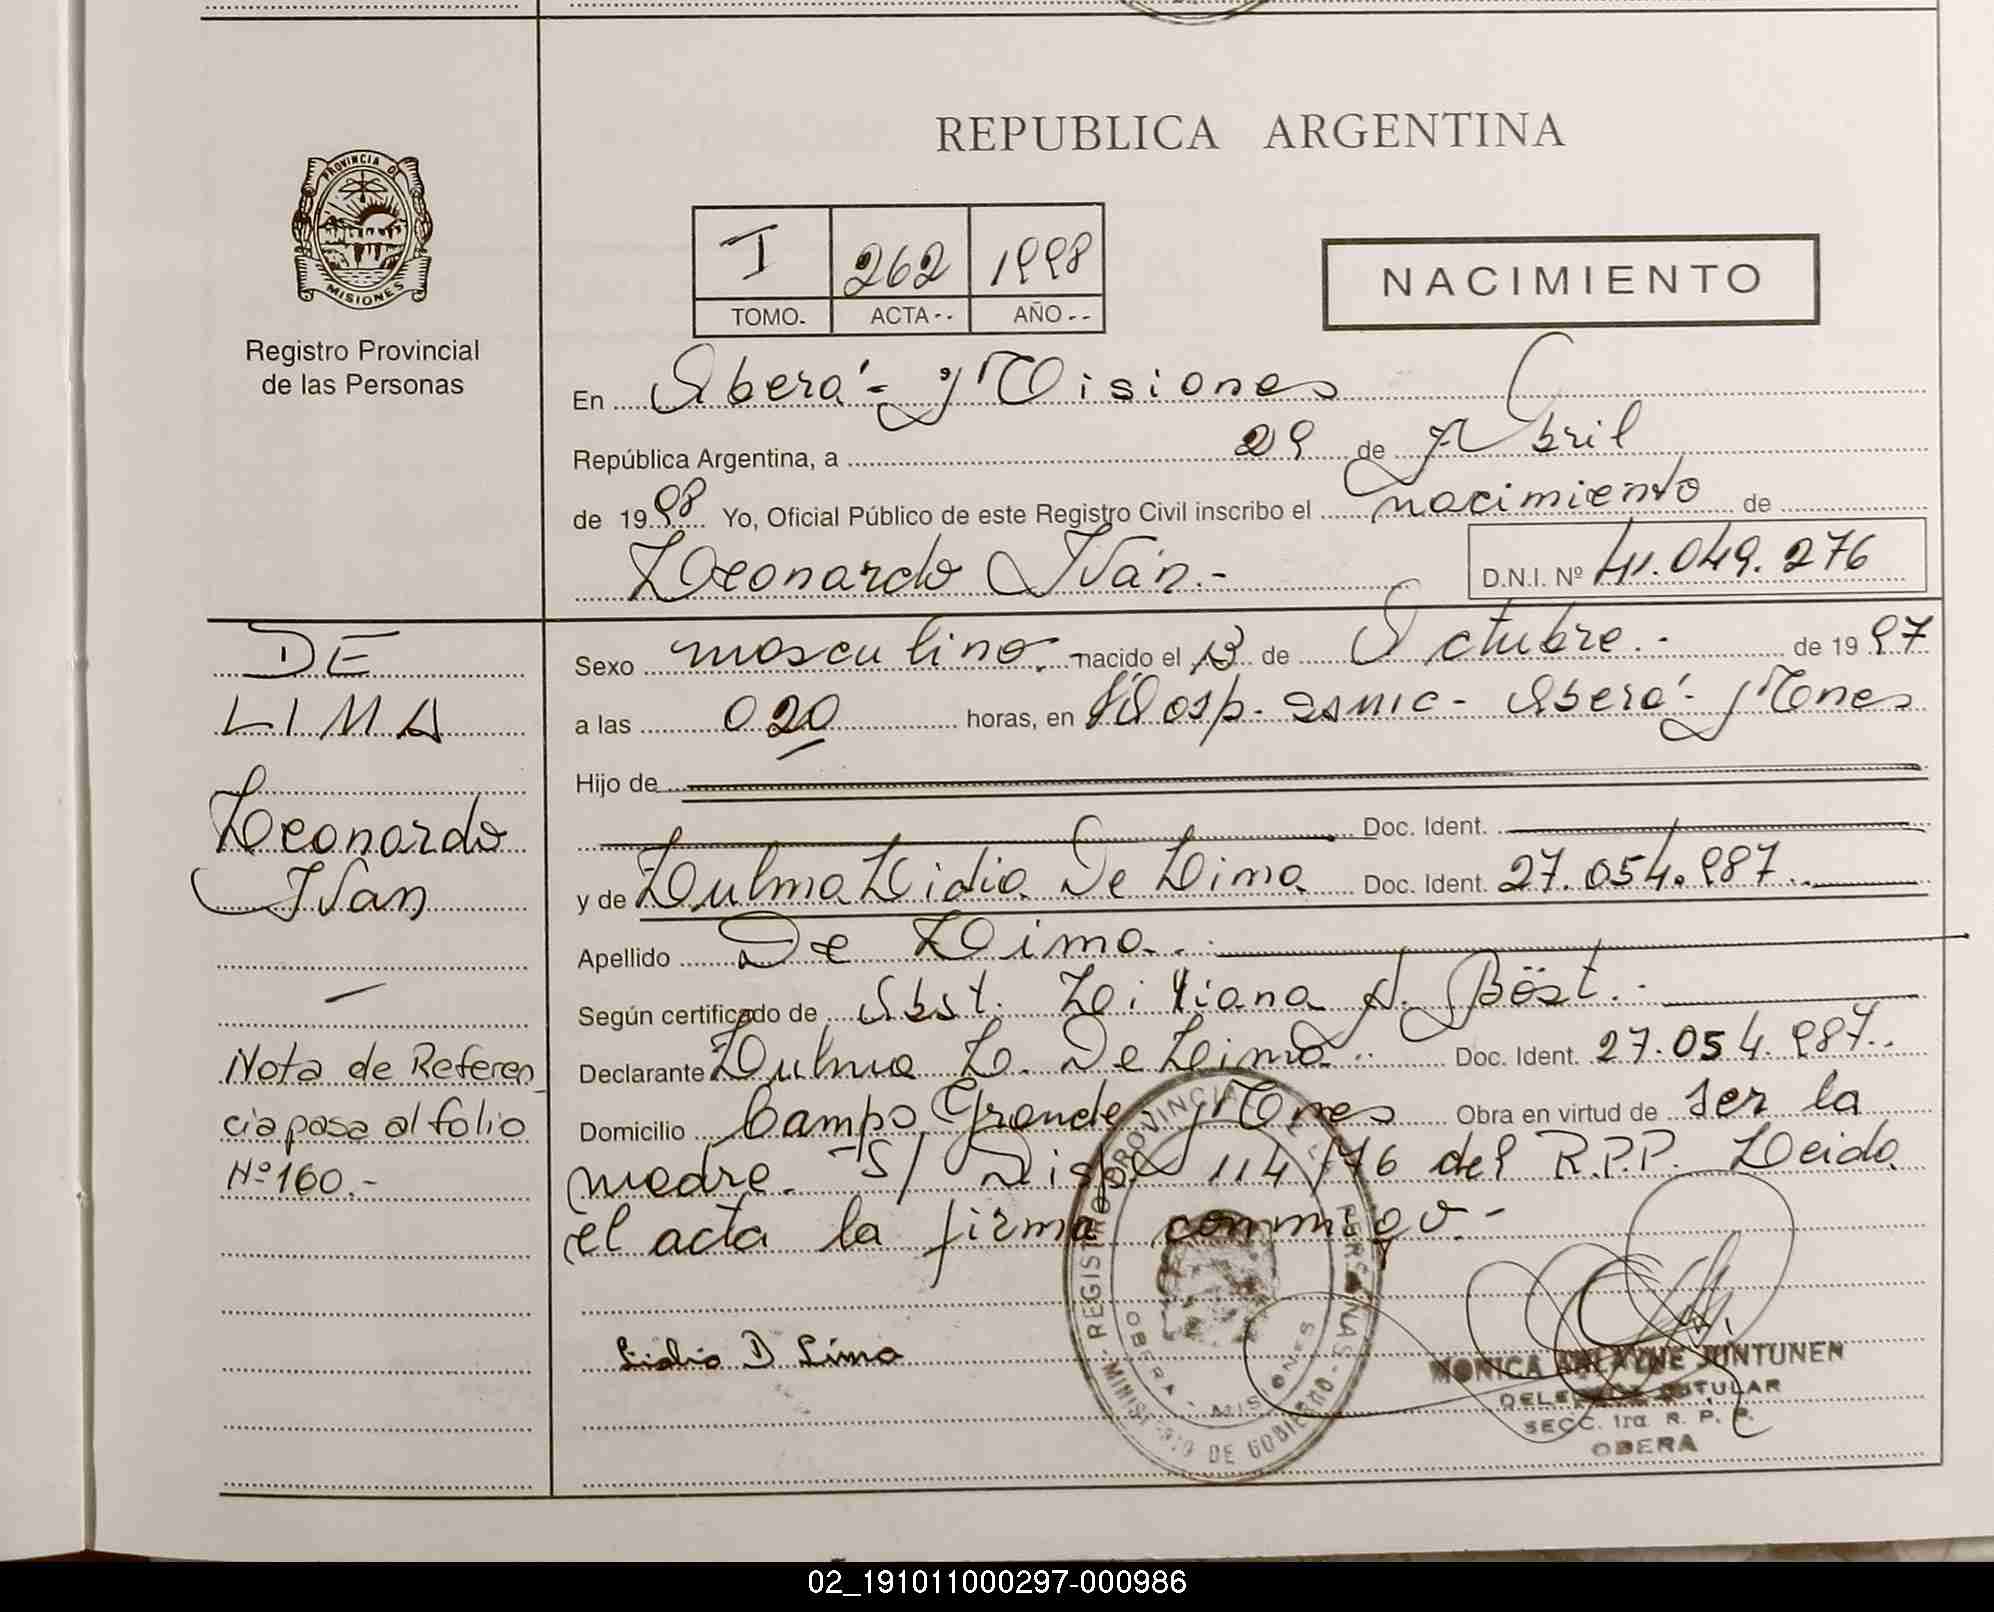 REPUBLICA ARGENTINA
PROVINCIA DE
MISIONES
Registro Provincial
de las Personas
I 262 1998
TOMO. ACTA.. AÑO..
NACIMIENTO
En Oberá - Misiones
República Argentina, a 29 de Abril
de 1998 Yo, Oficial Público de este Registro Civil inscribo el nacimiento de
Leonardo Iván.-
D.N.I. Nº 41.049.276
DE
LIMA
Leonardo
Iván
Nota de Referen
cia pasa al folio
Nº 160.-
Sexo masculino. nacido el 13 de Octubre. de 1997
a las 0 20 horas, en Hosp. Oberá - Mnes
Hijo de
Doc. Ident.
y de Lidia De Lima Doc. Ident. 27.054.987.
Apellido De Lima.
Según certificado de Obst. Liliana A. Böst.
Declarante L. De Lima. Doc. Ident. 27.054.987.
Domicilio Campo Grande - Mnes Obra en virtud de ser la
madre. S/ Disp. 114/76 del R.P.P. Leida
el acta la firma conmigo.-
Lidia D Lima
REGISTRO PROVINCIAL DE PERSONAS
OBERA - MISIONES
MINISTERIO DE GOBIERNO
MONICA JUNTUNEN
DELEGADA TITULAR
SECC. 1ra R. P. P.
OBERA
02_191011000297-000986